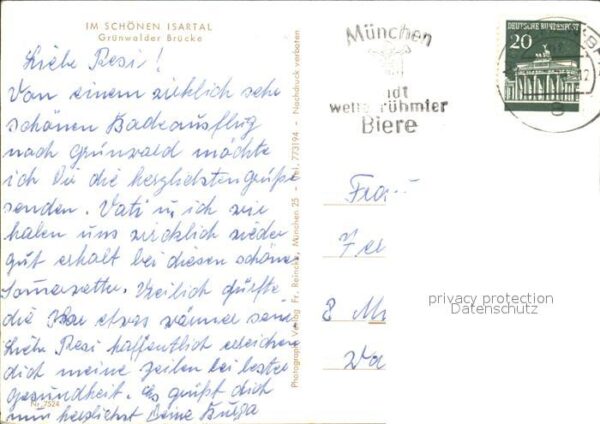 IM SCHÖNEN ISARTAL
Grünwalder Brücke
Liebe Resi!
Von einem wirklich sehr
schönen Badeausflug
nach Grünwald möchte
ich Dir die herzlichsten Grüße
senden. Vati u. ich wir
haben uns wirklich wieder
gut erholt bei diesen schönen
Sommerwetter. Freilich dürfte
die Isar etwas wärmer sein
Liebe Resi hoffentlich erreichen
dich meine Zeilen bei bester
Gesundheit. Es grüßt dich
nun herzlichst Deine
Nr. 7524
Photograph. Verlag Fr. Reincke, München 25 - Tel. 773194 - Nachdruck verboten
München
dt
weltberühmter
Biere
DEUTSCHE BUNDESPOST
20
8
Frau
8 M
privacy protection
Datenschutz